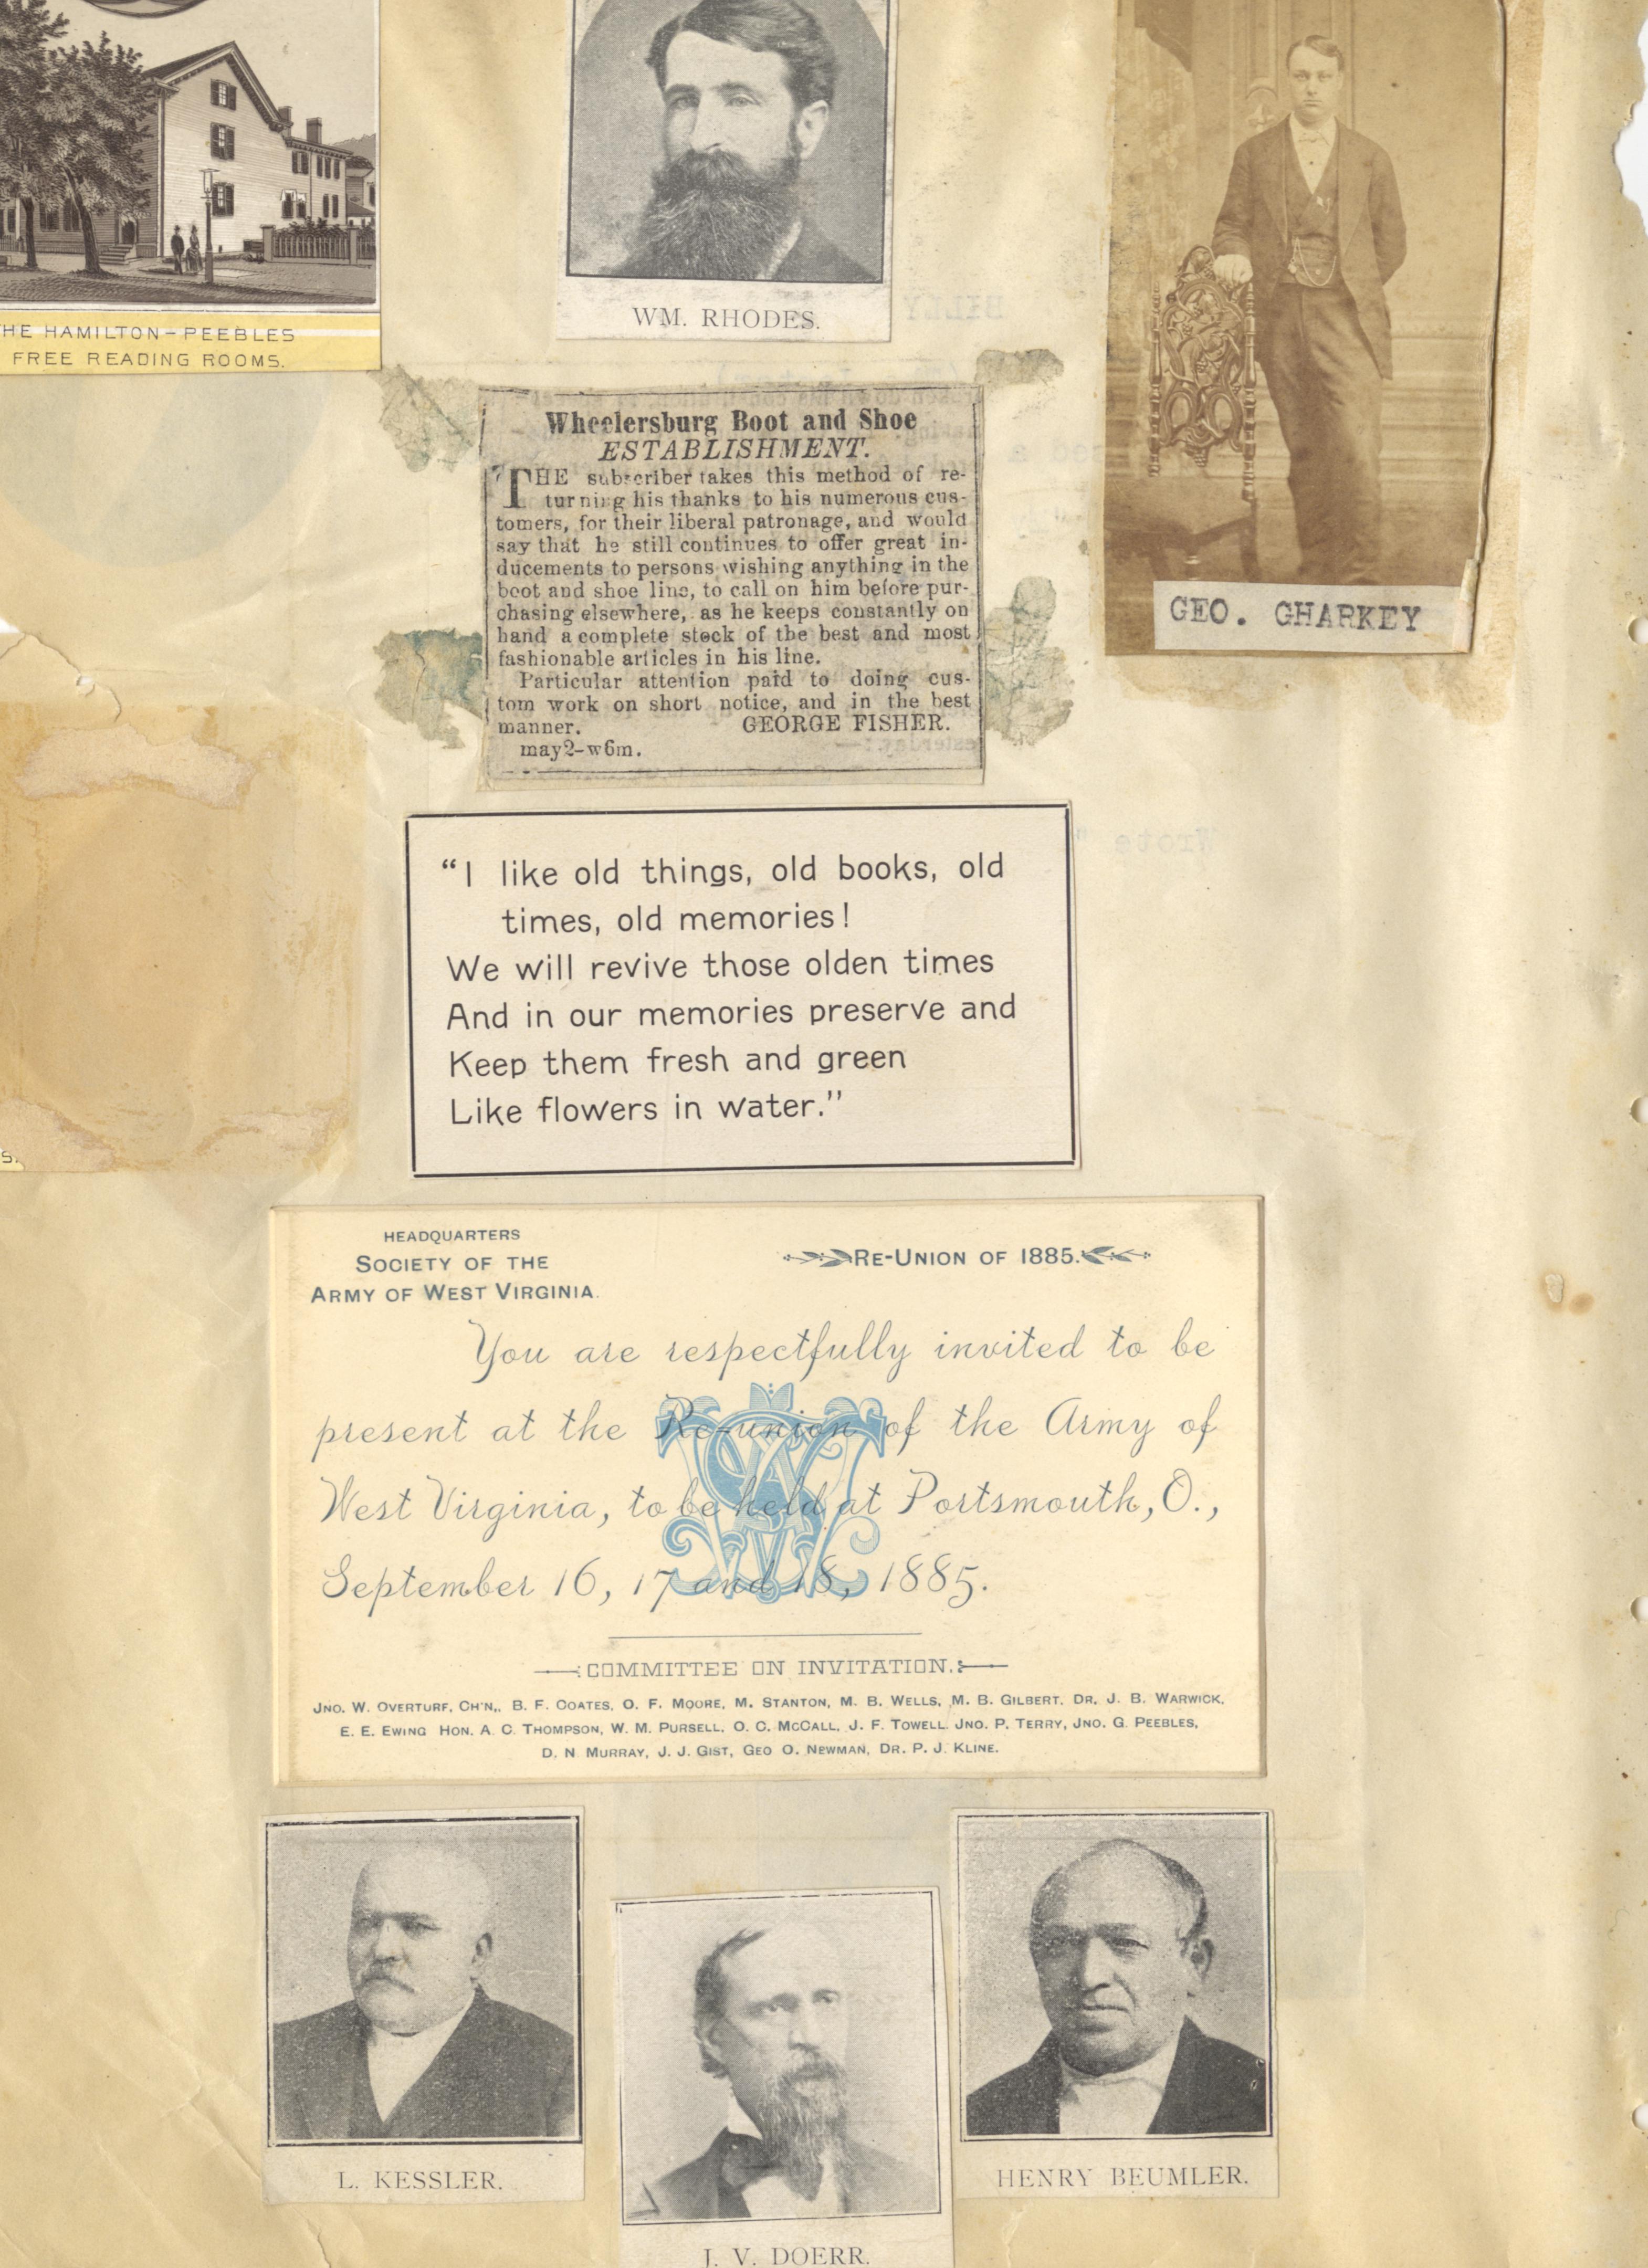 HE HAMILTON-PEEBLES
FREE READING ROOMS.
WM. RHODES.
GEO. GHARKEY
Wheelersburg Boot and Shoe
ESTABLISHMENT.
THE subscriber takes this method of re-
turning his thanks to his numerous cus-
tomers, for their liberal patronage, and would
say that he still continues to offer great in-
ducements to persons wishing anything in the
boot and shoe line, to call on him before pur-
chasing elsewhere, as he keeps constantly on
hand a complete stock of the best and most
fashionable articles in his line.
Particular attention paid to doing cus-
tom work on short notice, and in the best
manner. GEORGE FISHER.
may2-w6m.
“I like old things, old books, old
times, old memories!
We will revive those olden times
And in our memories preserve and
Keep them fresh and green
Like flowers in water.”
HEADQUARTERS
SOCIETY OF THE
ARMY OF WEST VIRGINIA.
RE-UNION OF 1885.
You are respectfully invited to be
present at the Re-union of the Army of
West Virginia, to be held at Portsmouth, O.,
September 16, 17 and 18, 1885.
COMMITTEE ON INVITATION.
JNO. W. OVERTURF, CH'N., B. F. COATES, O. F. MOORE, M. STANTON, M. B. WELLS, M. B. GILBERT, DR. J. B. WARWICK,
E. E. EWING HON. A. C. THOMPSON, W. M. PURSELL, O. C. MCCALL, J. F. TOWELL, JNO. P. TERRY, JNO. G. PEEBLES,
D. N. MURRAY, J. J. GIST, GEO O. NEWMAN, DR. P. J. KLINE.
L. KESSLER.
J. V. DOERR.
HENRY BEUMLER.